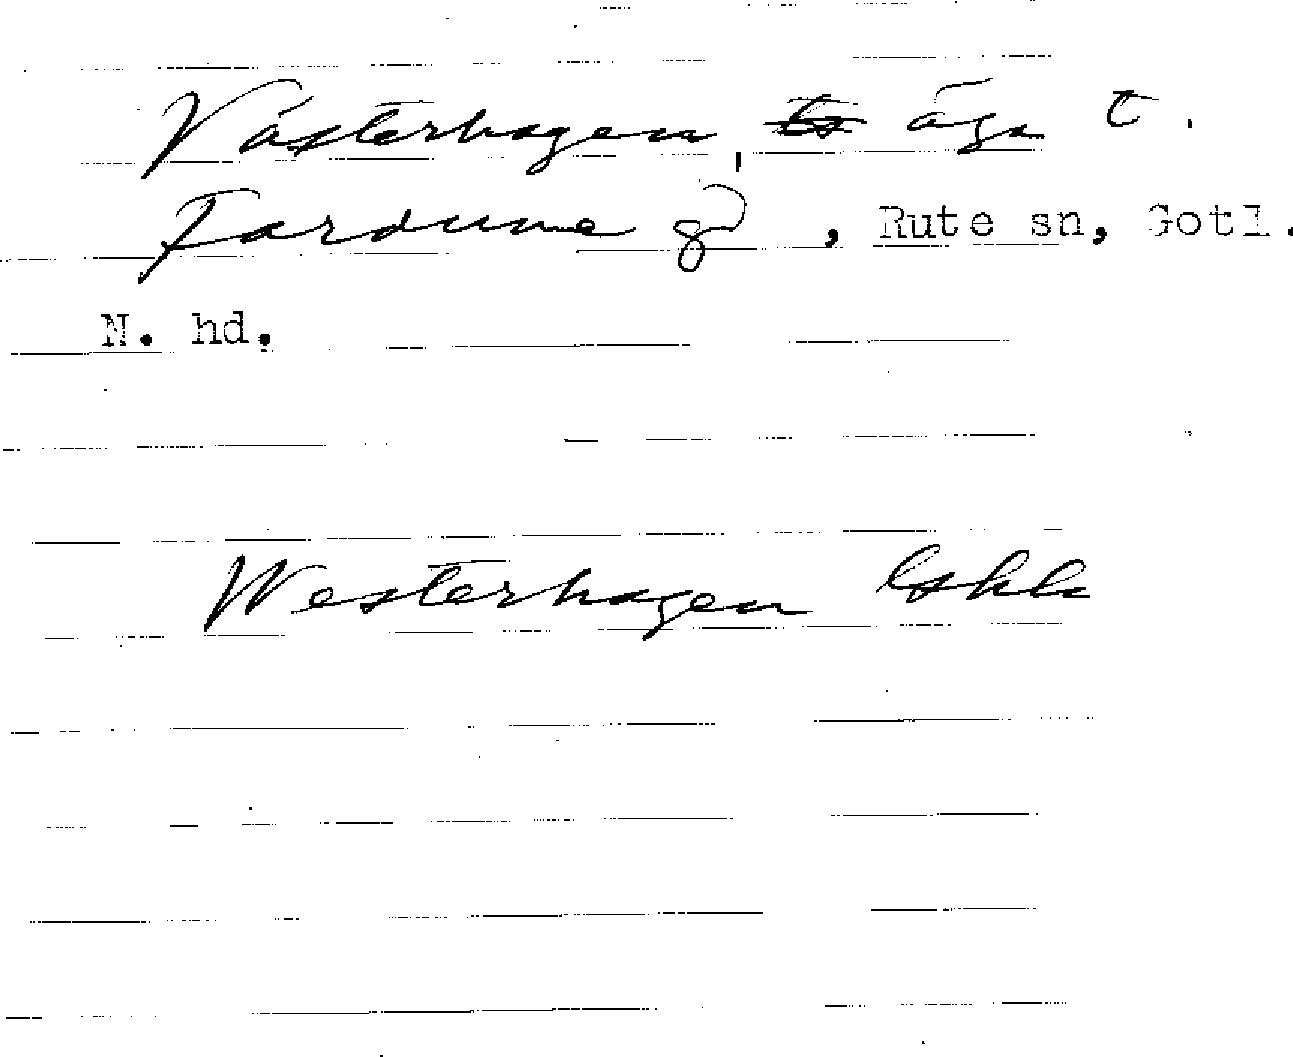 Västerhagen, äga t.
Fardume gd, Rute sn, Gotl.
N. hd.
Westerhagen